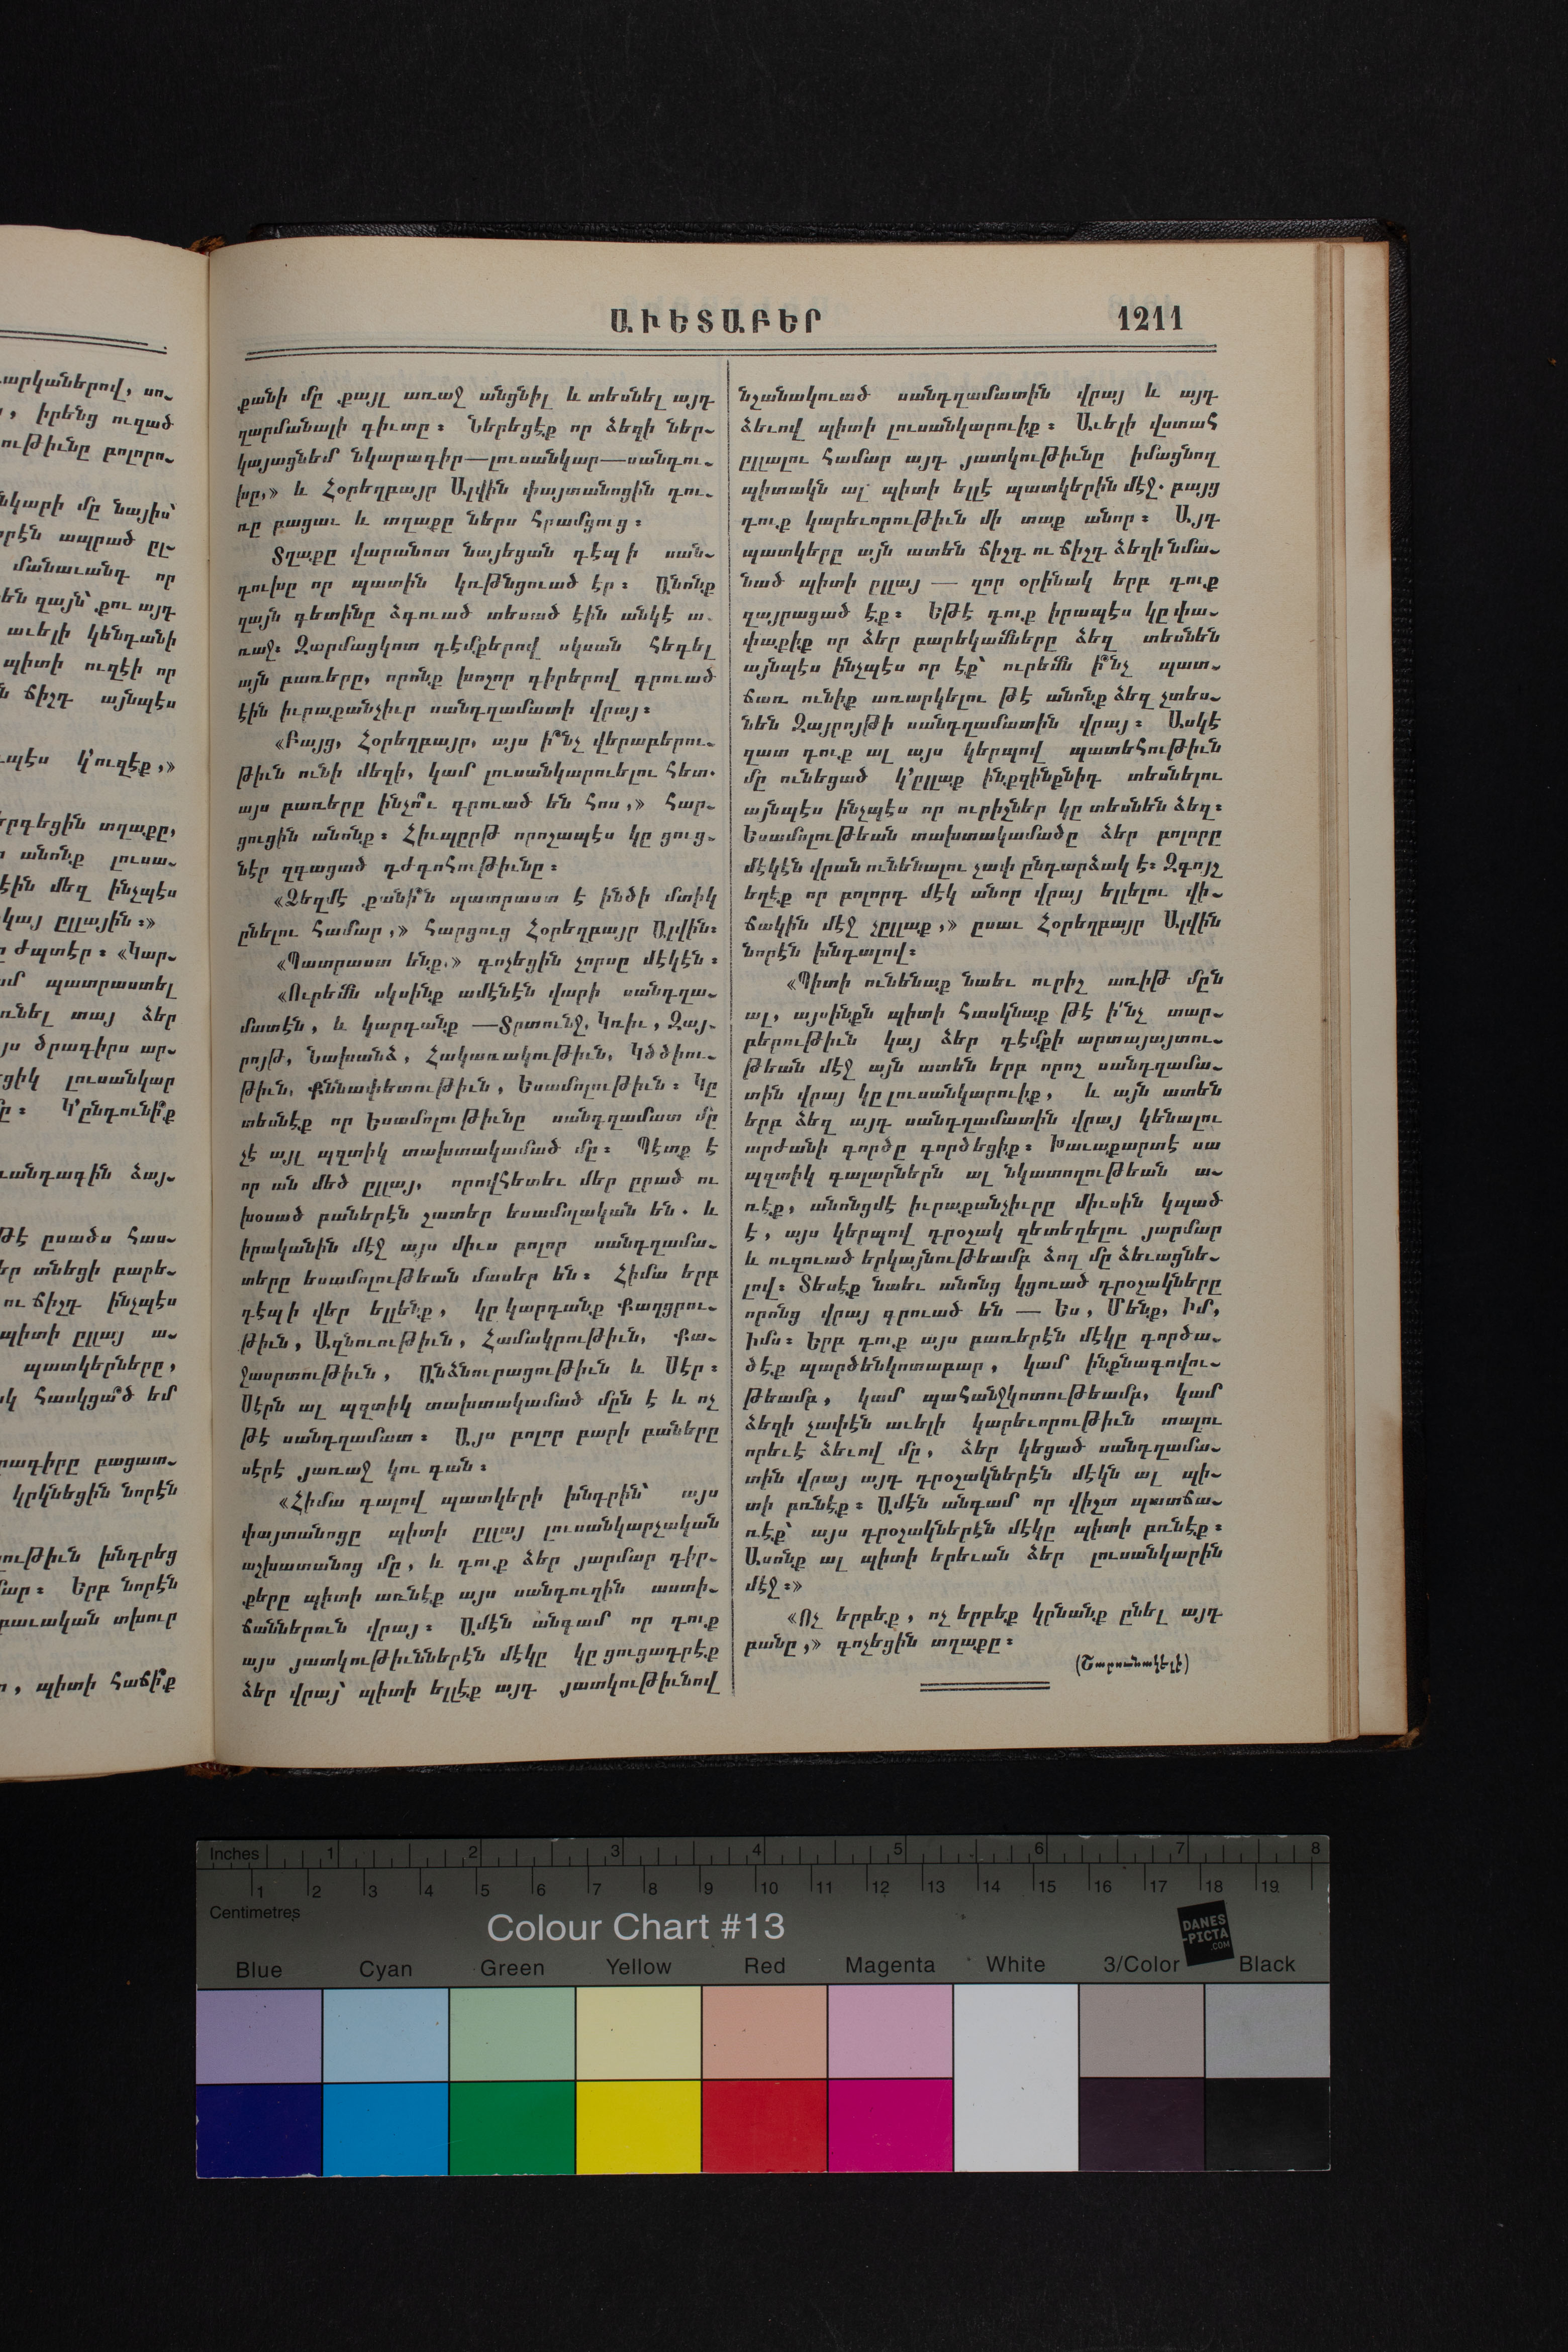 ԱՒԵՏԱԲԵՐ
1211
քանի մը քայլ առաջ անցնիլ և տեսնել այդ
զարմանալի գիւտը։ Ներեցէք որ ձեզի ներ-
կայացնեմ նկարագիր—լուսանկար—սանդու-
խը,» և Հօրեղբայր Ալվին փայտանոցին դու-
ռը բացաւ և տղաքը ներս հրամցուց։
Տղաքը վարանոտ նայեցան դէպ ի սան-
դուխը որ պատին կռթնցուած էր։ Անոնք
զայն գետինը ձգուած տեսած էին անկէ ա-
ռաջ։ Զարմացկոտ դէմքերով սկսան հեգել
այն բառերը, որոնք խոշոր գիրերով գրուած
էին իւրաքանչիւր սանդղամատի վրայ։
«Բայց, Հօրեղբայր, այս ի՞նչ վերաբերու-
թիւն ունի մեզի, կամ լուսանկարուելու հետ.
այս բառերը ինչո՞ւ գրուած են հոս,» հար-
ցուցին անոնք։ Հիւպըրթ որոշապէս կը ցուց-
նէր զգացած դժգոհութիւնը։
«Ձեզմէ քանի՞ն պատրաստ է ինծի մտիկ
ընելու համար,» հարցուց Հօրեղբայր Ալվին։
«Պատրաստ ենք,» գոչեցին չորսը մէկէն։
«Ուրեմն սկսինք ամէնէն վարի սանդղա-
մատէն, և կարդանք —Տրտունջ, Կռիւ, Զայ-
րոյթ, Նախանձ, Հակառակութիւն, Կծծիու-
թիւն, Քննափետութիւն, Եսամոլութիւն։ Կը
տեսնէք որ Եսամոլութիւնը սանդղամատ մը
չէ այլ պզտիկ տախտակամած մը։ Պէտք է
որ ան մեծ ըլլայ, որովհետեւ մեր ըրած ու
խօսած բաներէն շատեր եսամոլական են. և
իրականին մէջ այս միւս բոլոր սանդղամա-
տերը եսամոլութեան մասեր են։ Հիմա երբ
դէպ ի վեր ելլենք, կը կարդանք Քաղցրու-
թիւն, Ազնուութիւն, Համակրութիւն, Քա-
ջասրտութիւն, Անձնուրացութիւն և Սէր։
Սէրն ալ պզտիկ տախտակամած մըն է և ոչ
թէ սանդղամատ։ Այս բոլոր բարի բաները
սէրէ յառաջ կու գան։
«Հիմա գալով պատկերի խնդրին՝ այս
փայտանոցը պիտի ըլլայ լուսանկարչական
աշխատանոց մը, և դուք ձեր յարմար դիր-
քերը պիտի առնէք այս սանդուղին աստի-
ճաններուն վրայ։ Ամէն անգամ որ դուք
այս յատկութիւններէն մէկը կը ցուցադրէք
ձեր վրայ՝ պիտի ելլէք այդ յատկութիւնով
նշանակուած սանդղամատին վրայ և այդ
ձեւով պիտի լուսանկարուիք։ Աւելի վստահ
ըլլալու համար այդ յատկութիւնը իմացնող
պիտակն ալ պիտի ելլէ պատկերին մէջ. բայց
դուք կարեւորութիւն մի տաք անոր։ Այդ
պատկերը այն ատեն ճիշդ ու ճիշդ ձեզի նմա-
նած պիտի ըլլայ — զոր օրինակ երբ դուք
զայրացած էք։ Եթէ դուք իրապէս կը փա-
փաքիք որ ձեր բարեկամները ձեզ տեսնեն
այնպէս ինչպէս որ էք՝ ուրեմն ի՞նչ պատ-
ճառ ունիք առարկելու թէ անոնք ձեզ չտես-
նեն Զայրոյթի սանդղամատին վրայ։ Ասկէ
զատ դուք ալ այս կերպով պատեհութիւն
մը ունեցած կ՚ըլլաք ինքզինքնիդ տեսնելու
այնպէս ինչպէս որ ուրիշներ կը տեսնեն ձեզ։
Եսամոլութեան տախտակամածը ձեր բոլորը
մէկէն վրան ունենալու չափ ընդարձակ է։ Զգոյշ
եղէք որ բոլորդ մէկ անոր վրայ ելլելու վի-
ճակին մէջ չըլլաք,» ըսաւ Հօրեղբայր Ալվին
նորէն խնդալով։
«Պիտի ունենաք նաեւ ուրիշ առիթ մըն
ալ, այսինքն պիտի հասկնաք թէ ի՛նչ տար-
բերութիւն կայ ձեր դէմքի արտայայտու-
թեան մէջ այն ատեն երբ որոշ սանդղամա-
տին վրայ կը լուսանկարուիք, և այն ատեն
երբ ձեզ այդ սանդղամատին վրայ կենալու
արժանի գործը գործեցիք։ Խաւաքարտէ սա
պզտիկ գալարներն ալ նկատողութեան ա-
ռէք, անոնցմէ իւրաքանչիւրը միւսին կպած
է, այս կերպով դրօշակ զետեղելու յարմար
և ուզուած երկայնութեամբ ձող մը ձեւացնե-
լով։ Տեսէք նաեւ անոնց կցուած դրօշակները
որոնց վրայ գրուած են — Ես, Մենք, Իմ,
Իմս։ Երբ դուք այս բառերէն մէկը գործա-
ծէք պարծենկոտաբար, կամ ինքնագովու-
թեամբ, կամ պահանջկոտութեամբ, կամ
ձեզի չափէն աւելի կարեւորութիւն տալու
որեւէ ձեւով մը, ձեր կեցած սանդղամա-
տին վրայ այդ դրօշակներէն մէկն ալ պի-
տի բռնէք։ Ամէն անգամ որ վիշտ պատճա-
ռէք՝ այս դրօշակներէն մէկը պիտի բռնէք։
Ասոնք ալ պիտի երեւան ձեր լուսանկարին
մէջ։»
«Ոչ երբեք, ոչ երբեք կրնանք ընել այդ
բանը,» գոչեցին տղաքը։
(Շարունակելի)
Inches 1 2 3 4 5 6 7 8
1 2 3 4 5 6 7 8 9 10 11 12 13 14 15 16 17 18 19
Centimetres
Colour Chart #13
DANES
-PICTA
.COM
Blue Cyan Green Yellow Red Magenta White 3/Color Black